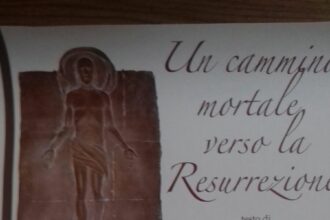 Un cammino
mortale
verso la
Resurrezione
testo di